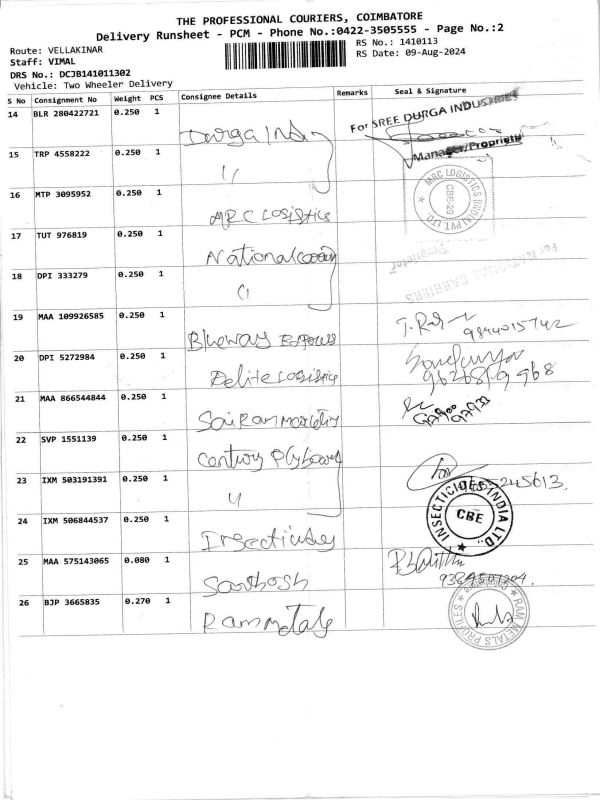 THE PROFESSIONAL COURIERS, COIMBATORE
Delivery Runsheet - PCM - Phone No.:0422-3505555 - Page No.:2
Route: VELLAKINAR
RS No.: 1410113
Staff: VIMAL
RS Date: 09-Aug-2024
DRS No.: DCJB141011302
Vehicle: Two Wheeler Delivery
S No Consignment No Weight PCS Consignee Details Remarks Seal & Signature
14 BLR 280422721 0.250 1 Durga Indu
For SREE DURGA INDUSTRIES
Manager/Proprietor
15 TRP 4558222 0.250 1 "
16 MTP 3095952 0.250 1 MRC Logistics
MRC LOGISTICS (INDIA) PVT. LTD.
CBE-29
17 TUT 976819 0.250 1 National
For NATIONAL CARRIERS
Proprietor
18 DPI 333279 0.250 1 "
19 MAA 109926585 0.250 1 Blueway Express
9844015742
20 DPI 5272984 0.250 1 Delite Logistics
21 MAA 866544844 0.250 1 Sairam
22 SVP 1551139 0.250 1 Century Plyboard
23 IXM 503191391 0.250 1 "
24 IXM 506844537 0.250 1 Insecticides
INSECTICIDES (INDIA) LTD.
CBE
25 MAA 575143065 0.080 1 Santhosh
26 BJP 3665835 0.270 1 Ram Metals
RAM METALS PROFILES